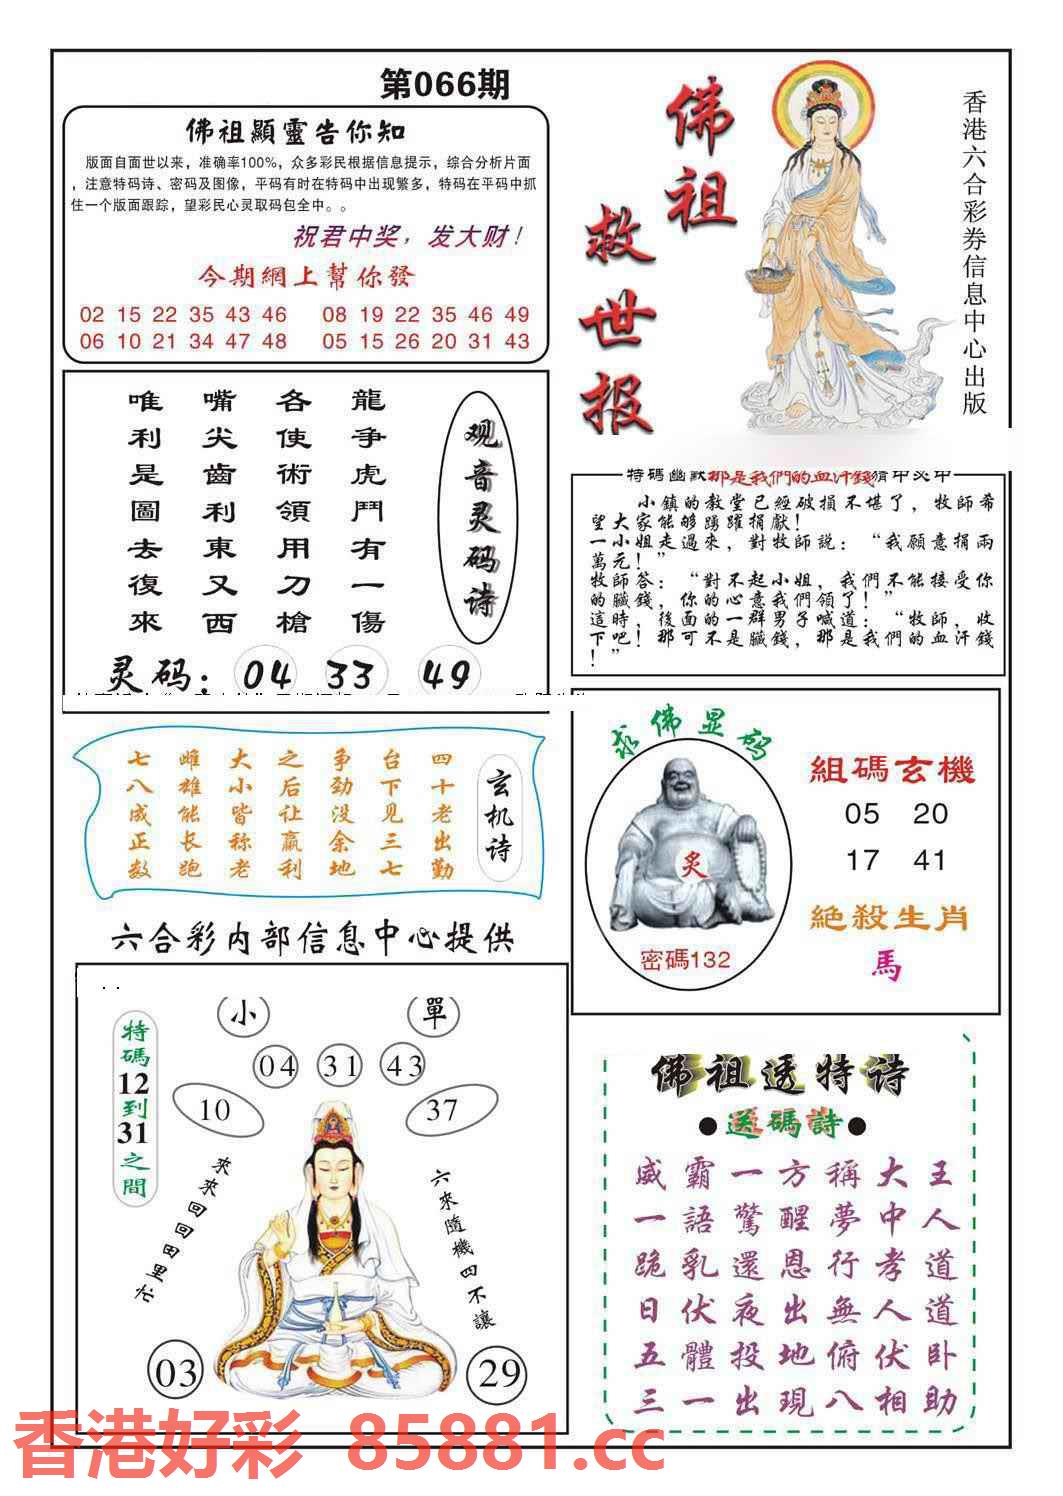 第066期
佛祖顯靈告你知
版面自面世以来，准确率100%，众多彩民根据信息提示，综合分析片面
，注意特码诗、密码及图像，平码有时在特码中出现繁多，特码在平码中抓
住一个版面跟踪，望彩民心灵取码包全中。。
祝君中奖，发大财！
今期網上幫你發
02 15 22 35 43 46 08 19 22 35 46 49
06 10 21 34 47 48 05 15 26 20 31 43
佛祖
救世报
香港六合彩券信息中心出版
观音灵码诗
龍争虎鬥有一傷
各使術領用刀槍
嘴尖齒利東又西
唯利是圖去復來
灵码：04 33 49
特碼幽默那是我們的血汗錢猜中必中
小鎮的教堂已經破損不堪了，牧師希
望大家能够踴躍捐獻！
一小姐走過來，對牧師説：“我願意捐兩
萬元！”
牧師答：“對不起小姐，我們不能接受你
的臟錢，你的心意我們領了！”
這時，後面的一群男子喊道：“牧師，收
下吧！那可不是臟錢，那是我們的血汗錢
！”
玄机诗
四十老出勤
台下见三七
争劲没余地
之后让赢利
大小皆称老
雌雄能长跑
七八成正数
求佛显码
炙
密碼132
組碼玄機
05 20
17 41
絕殺生肖
馬
六合彩内部信息中心提供
小
單
04 31 43
10
37
特碼12到31之間
來來回回田里忙
六來隨機四不讓
03
29
佛祖透特诗
●送碼詩●
威霸一方稱大王
一語驚醒夢中人
跪乳還恩行孝道
日伏夜出無人道
五體投地俯伏卧
三一出現八相助
香港好彩 85881.cc